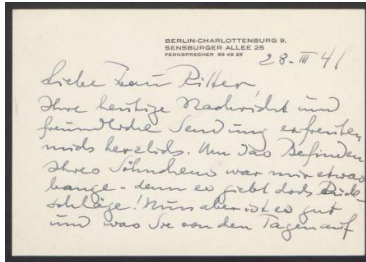 BERLIN-CHARLOTTENBURG 9,
SENSBURGER ALLEE 26
FERNSPRECHER 99 49 28
28. III 41
Liebe Frau Ritter
Ihre heutige Nachricht und
freundliche Sendung erfreuten
mich herzlich. Um das Befinden
Ihres Söhnchens war mir etwas
bange - denn es giebt doch Rück-
schläge! Nun aber ist es gut
und was Sie von den Tagen auf